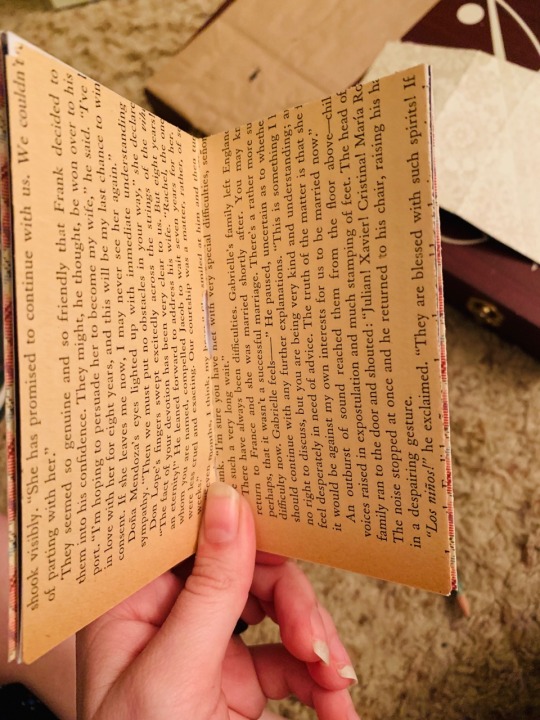 shook visibly. "She has promised to continue with us. We couldn't
of parting with her."
They seemed so genuine and so friendly that Frank decided to
them into his confidence. They might, he thought, be won over to his
port. "I'm hoping to persuade her to become my wife," he said. "I've
in love with her for eight years, and this will be my last chance to win
consent. If she leaves me now, I may never see her again."
Doña Mendoza's eyes lighted up with immediate understanding
sympathy. "Then we must put no obstacles in your way," she declare
Don Lope's fingers swept excitedly across the strings of the
"The lady's devotion has been very clear to us. But eight years
an eternity!" He leaned forward to address his wife. "Rachel, the one
woman you are named, compelled Jacob to wait seven years for her.
were was
exacting. Our courtship was a matter, rather, of
smiled at him and then
I think, my
have met with very special difficulties, señor
"I'm sure you have
such a very long wait."
There have always been difficulties. Gabrielle's family left England
return to France and she was married shortly after. You may
perhaps, that it wasn't a successful marriage. There's a rather more
difficulty now. Gabrielle feels——" He paused, uncertain as to whethe
should continue with any further explanations. "This is something I
no right to discuss, but you are being very kind and understanding;
feel desperately in need of advice. The truth of the matter is that she
it would be against my own interests for us to be married now."
An outburst of sound reached them from the floor above—chil
voices raised in expostulation and much stamping of feet. The head of
family ran to the door and shouted: "Julian! Xavier! Cristina! María Ro
The noise stopped at once and he returned to his chair, raising his ha
in a despairing gesture.
"Los niños!" he exclaimed. "They are blessed with such spirits! If